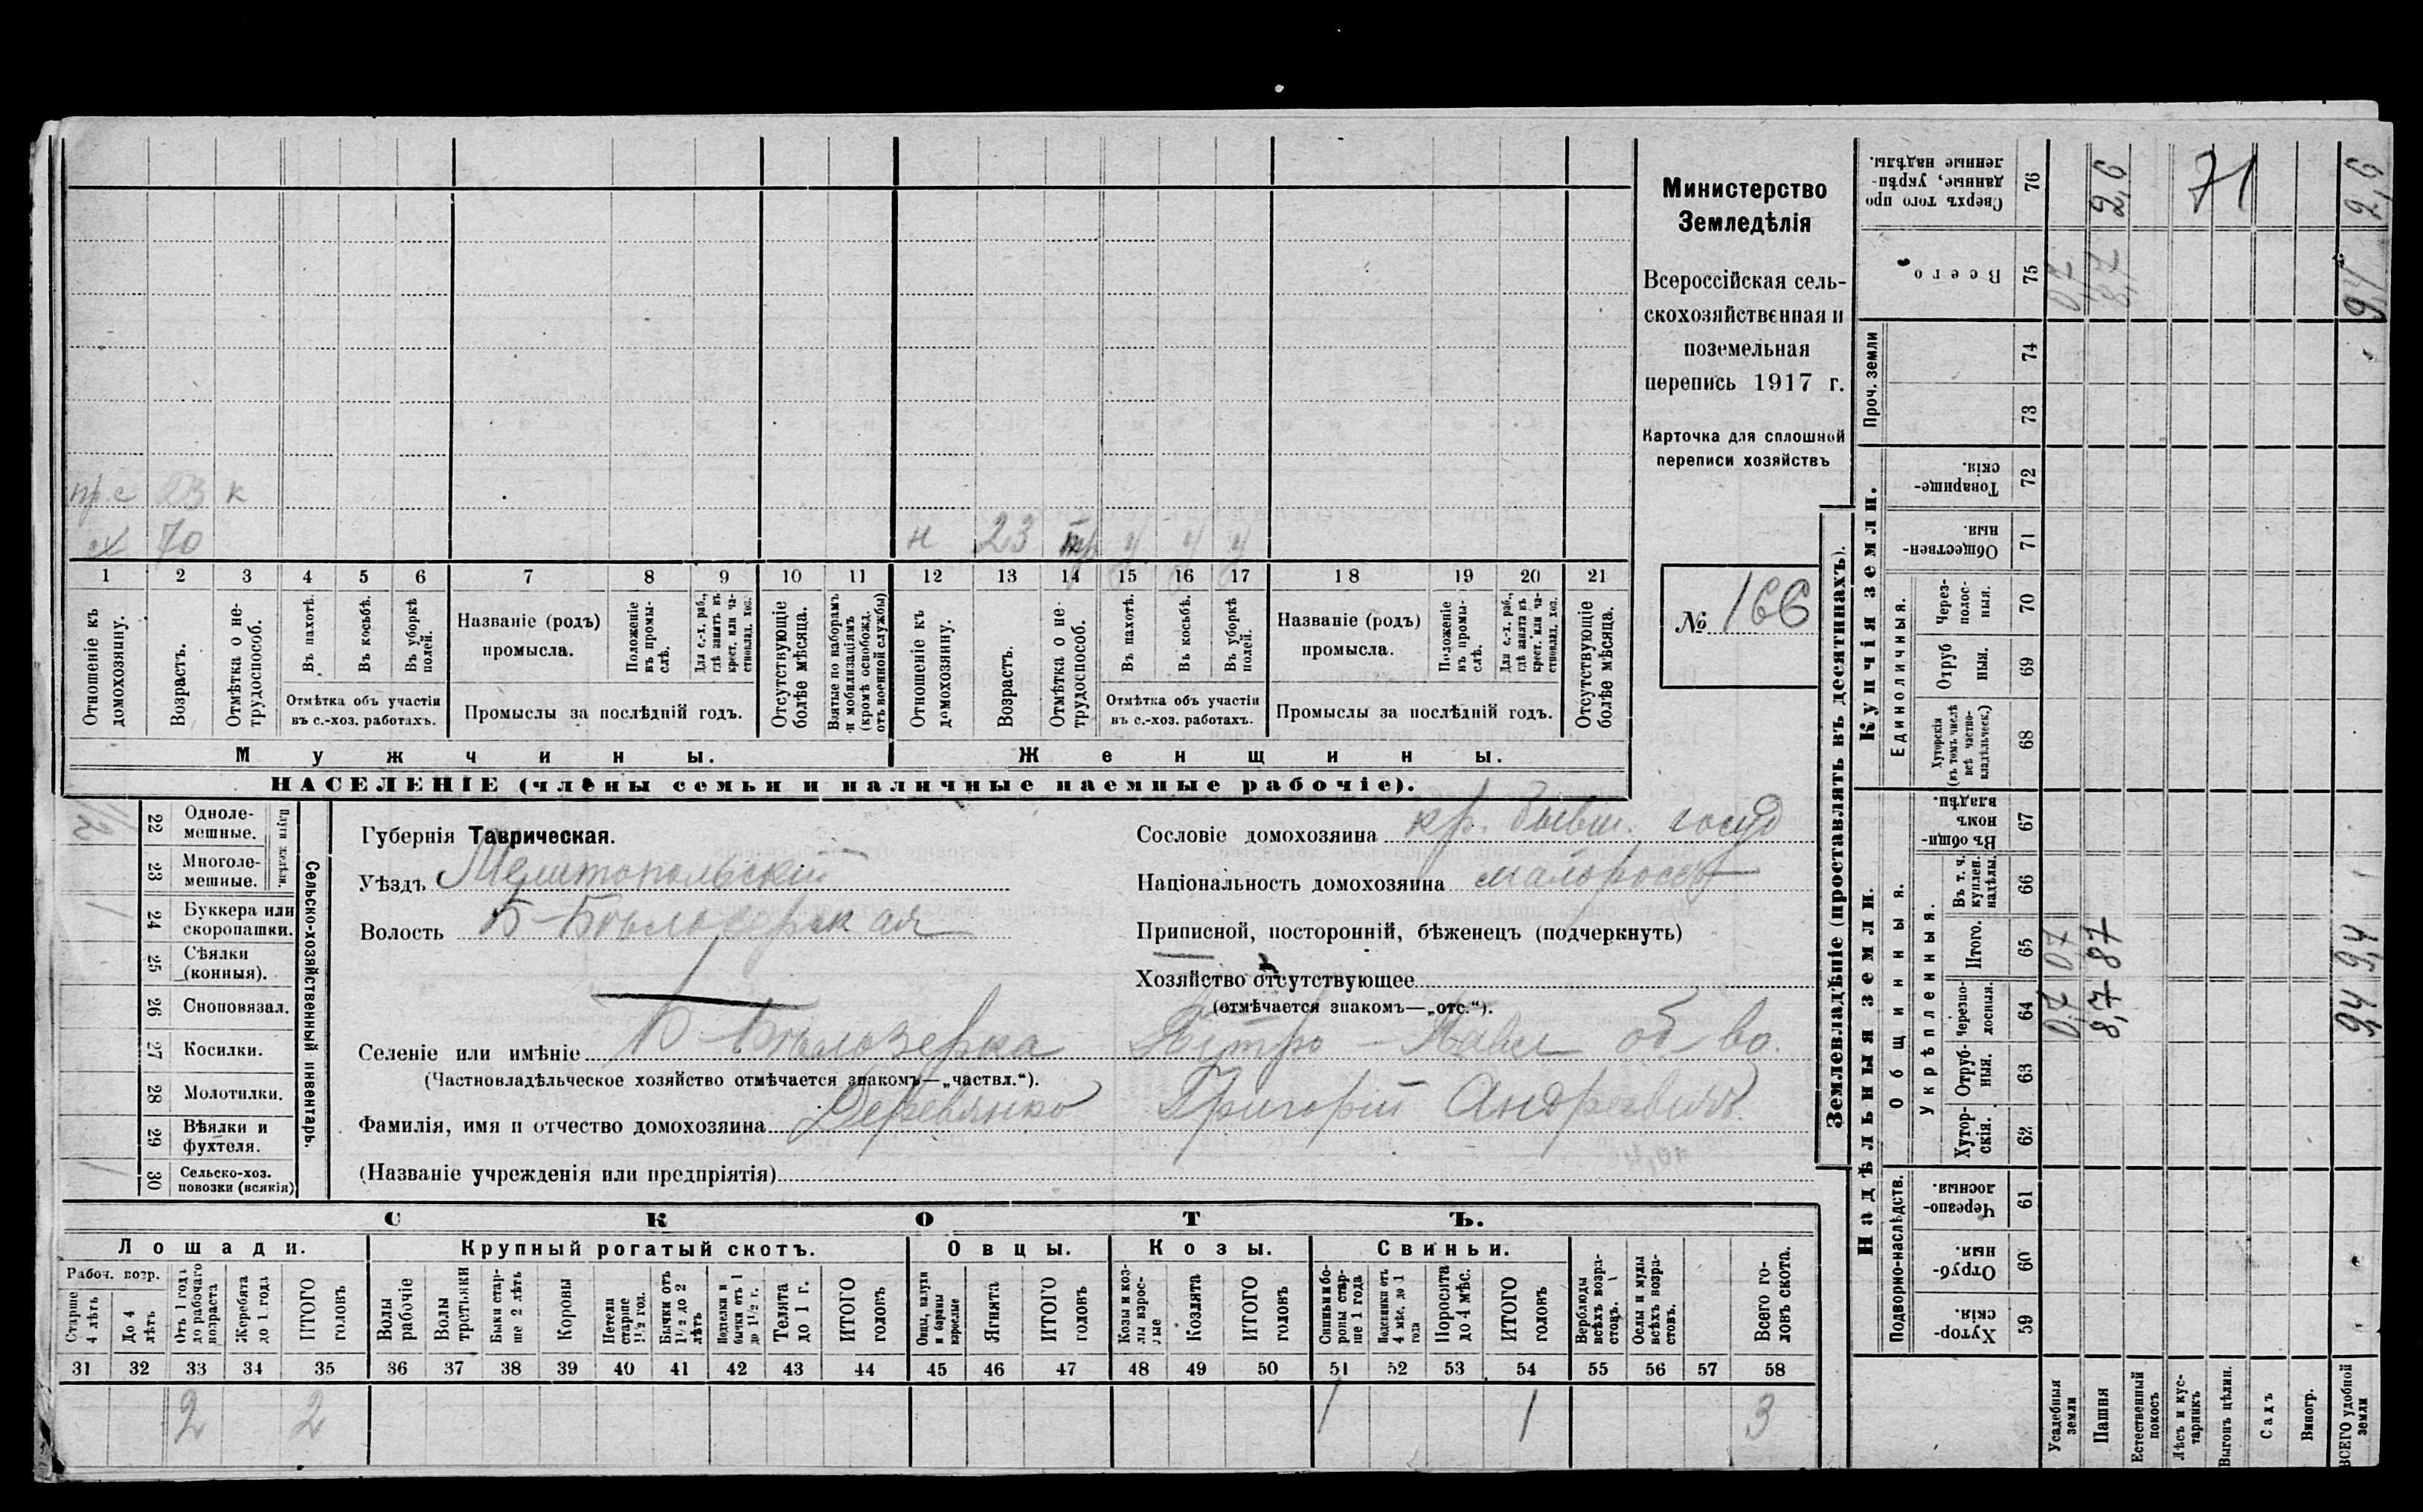 Министерство
Земледѣлія
Всероссійская сель-
скохозяйственная и
поземельная
перепись 1917 г.
Карточка для сплошной
переписи хозяйствъ
№ 166
пр.с 23 к
70
н 23 у у у
1 2 3 4 5 6 7 8 9 10 11 12 13 14 15 16 17 18 19 20 21
Отношеніе къ домохозяину.
Возрастъ.
Отмѣтка о не-трудоспособ.
Въ пахотѣ.
Въ косьбѣ.
Въ уборкѣ полей.
Отмѣтка объ участіи
въ с.-хоз. работахъ.
Названіе (родъ)
промысла.
Положеніе въ промы-слѣ.
Для с.-х. раб., гдѣ занятъ въ крест. или ча-стновлад. хоз.
Промыслы за послѣдній годъ.
Отсутствующіе болѣе мѣсяца.
Взятые по наборамъ и мобилизаціямъ (кромѣ освобожд. отъ военной службы)
Отношеніе къ домохозяину.
Возрастъ.
Отмѣтка о не-трудоспособ.
Въ пахотѣ.
Въ косьбѣ.
Въ уборкѣ полей.
Отмѣтка объ участіи
въ с.-хоз. работахъ.
Названіе (родъ)
промысла.
Положеніе въ промы-слѣ.
Для с.-х. раб., гдѣ занята въ крест. или ча-стновлад. хоз.
Промыслы за послѣдній годъ.
Отсутствующіе болѣе мѣсяца.
Мужчины.
Женщины.
НАСЕЛЕНІЕ (члены семьи и наличные наемные рабочіе).
Сельско-хозяйственный инвентарь.
Плуги желѣзн.
22 Одноле-мешные.
23 Многоле-мешные.
24 Буккера или скоропашки.
25 Сѣялки (конныя).
26 Сноповязал.
27 Косилки.
28 Молотилки.
29 Вѣялки и фухтеля.
30 Сельско-хоз. повозки (всякія)
Губернія Таврическая.
Уѣздъ Мелитопольскій
Волость Б-Бѣлозерская
Селеніе или имѣніе Б-Бѣлозерка Петро-Павл об во.
(Частновладѣльческое хозяйство отмѣчается знакомъ—„частвл.“).
Фамилія, имя и отчество домохозяина Деревянко Григорій Андреевичъ
(Названіе учрежденія или предпріятія)
Сословіе домохозяина кр. бывш. госуд
Національность домохозяина малороссъ
Приписной, посторонній, бѣженецъ (подчеркнуть)
Хозяйство отсутствующее
(отмѣчается знакомъ—„отс.“).
СКОТЪ.
Лошади.
Рабоч. возр.
Старше 4 лѣтъ
До 4 лѣтъ
Отъ 1 года до рабочаго возраста
Жеребята до 1 года
ИТОГО головъ
Крупный рогатый скотъ.
Волы рабочіе
Волы третьяки
Быки стар-ше 2 лѣтъ
Коровы
Нетели старше 1½ год.
Бычки отъ 1½ до 2 лѣтъ
Подтелки и бычки отъ 1 до 1½ г.
Телята до 1 г.
ИТОГО головъ
Овцы.
Овцы, валухи и бараны взрослые
Ягнята
ИТОГО головъ
Козы.
Козы и коз-лы взрос-лые
Козлята
ИТОГО головъ
Свиньи.
Свиньи и бо-ровы стар-ше 1 года
Подсвинки отъ 4 мѣс. до 1 года
Поросята до 4 мѣс.
ИТОГО головъ
Верблюды всѣхъ возра-стовъ.
Ослы и мулы всѣхъ возра-стовъ.
Всего го-ловъ скота.
31 32 33 34 35 36 37 38 39 40 41 42 43 44 45 46 47 48 49 50 51 52 53 54 55 56 57 58
2 2 1 1 3
Землевладѣніе (проставлять въ десятинахъ).
Надѣльныя земли.
Подворно-наслѣдств.
59 Хутор-скія.
60 Отруб-ныя.
61 Черезпо-лосныя.
Общинныя.
Укрѣпленныя.
62 Хутор-скія.
63 Отруб-ныя.
64 Черезпо-лосныя. 0,7 8,7 9,4
65 Итого. 0,7 8,7 9,4
66 Въ т. ч. куплен. надѣлы.
67 Въ общи-номъ владѣн.
Купчія земли.
Единоличныя.
68 Хуторскія (въ томъ числѣ всѣ частно-владѣльческ.)
69 Отруб-ныя.
70 Через-полос-ныя.
71 Обществен-ныя.
72 Товарище-скія.
Проч. земли
73
74
75 Всего 0,7 8,7 9,4
76 Сверхъ того про-данные, укрѣп-ленные надѣлы. 2,6 71 2,6
Усадебныя земли
Пашня
Естественный покосъ
Лѣсъ и кус-тарникъ
Выгонъ цѣлин.
Садъ
Виногр.
ВСЕГО удобной земли